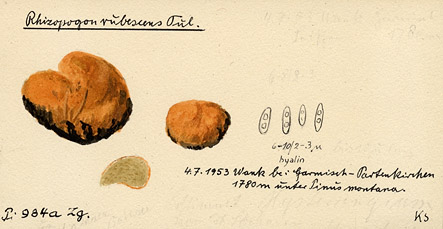 Rhizopogon rubescens Tul.
6-10/2-3 µ
hyalin
4.7.1953 Wank bei Garmisch-Partenkirchen
1780m unter Pinus montana.
I. 984a Zg.
KS